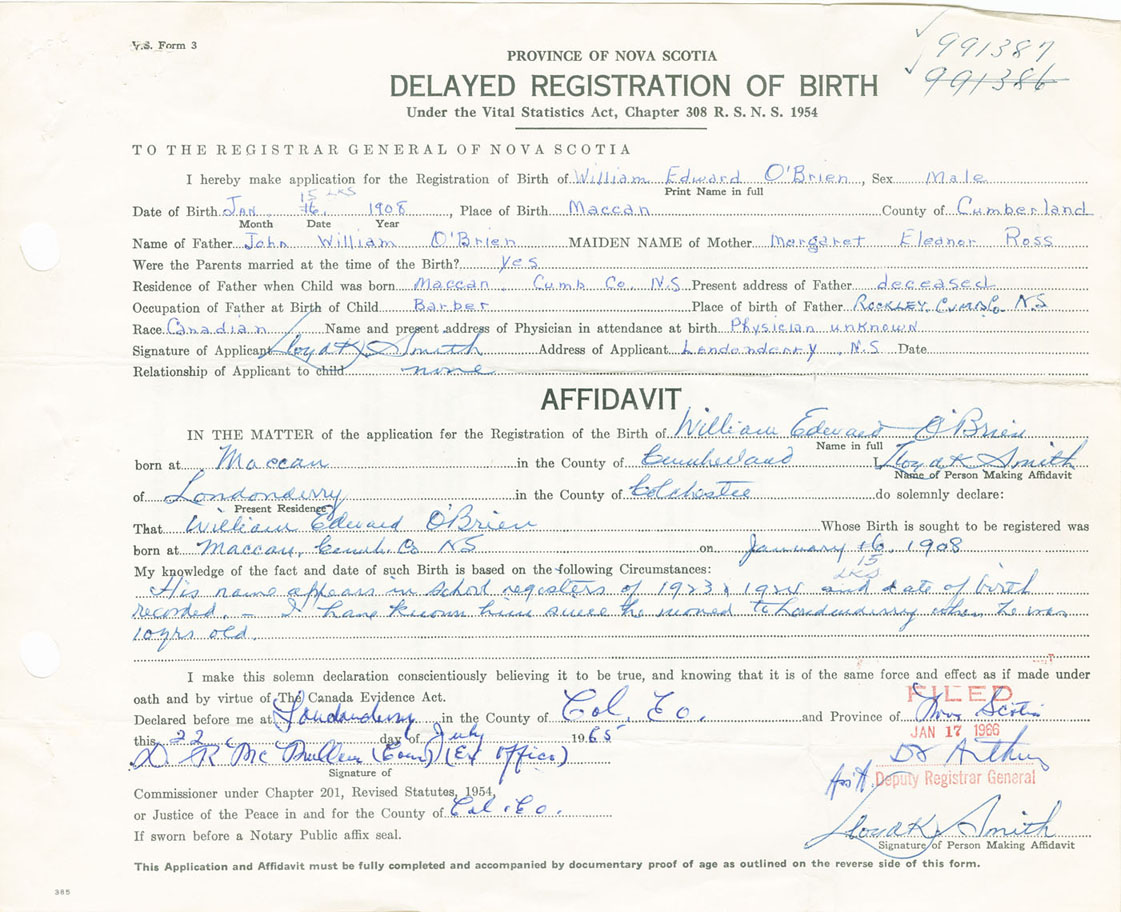 V.S. Form 3
991387
991386
PROVINCE OF NOVA SCOTIA
DELAYED REGISTRATION OF BIRTH
Under the Vital Statistics Act, Chapter 308 R. S. N. S. 1954
TO THE REGISTRAR GENERAL OF NOVA SCOTIA
I hereby make application for the Registration of Birth of William Edward O'Brien, Sex Male
Print Name in full
15 LKS
Date of Birth Jan. 16, 1908, Place of Birth Maccan County of Cumberland
Month Date Year
Name of Father John William O'Brien MAIDEN NAME of Mother Margaret Eleanor Ross
Were the Parents married at the time of the Birth? yes
Residence of Father when Child was born Maccan, Cumb Co. N.S Present address of Father deceased
Occupation of Father at Birth of Child Barber Place of birth of Father Rockley, Cumb Co. N.S
Race Canadian Name and present address of Physician in attendance at birth Physician unknown
Signature of Applicant Lloyd K Smith Address of Applicant Londonderry, N.S Date
Relationship of Applicant to child none
AFFIDAVIT
IN THE MATTER of the application for the Registration of the Birth of William Edward O'Brien
Name in full
born at Maccan in the County of Cumberland I, Lloyd K Smith
Name of Person Making Affidavit
of Londonderry in the County of Colchester do solemnly declare:
Present Residence
That William Edward O'Brien Whose Birth is sought to be registered was
born at Maccan, Cumb. Co NS on January 16, 1908
15
LKS
My knowledge of the fact and date of such Birth is based on the following Circumstances:
His name appears in School registers of 1923 & 1924 and date of birth
recorded. – I have known him since he moved to Londonderry when he was
10 yrs old.
I make this solemn declaration conscientiously believing it to be true, and knowing that it is of the same force and effect as if made under
oath and by virtue of The Canada Evidence Act.
FILED
Declared before me at Londonderry in the County of Col. Co. and Province of Nova Scotia
JAN 17 1966
this 22 day of July 1965
D R McMullen (Com) (Ex Officio)
Signature of
Asst. Deputy Registrar General
Commissioner under Chapter 201, Revised Statutes, 1954,
or Justice of the Peace in and for the County of Col. Co.
Lloyd K Smith
Signature of Person Making Affidavit
If sworn before a Notary Public affix seal.
This Application and Affidavit must be fully completed and accompanied by documentary proof of age as outlined on the reverse side of this form.
385